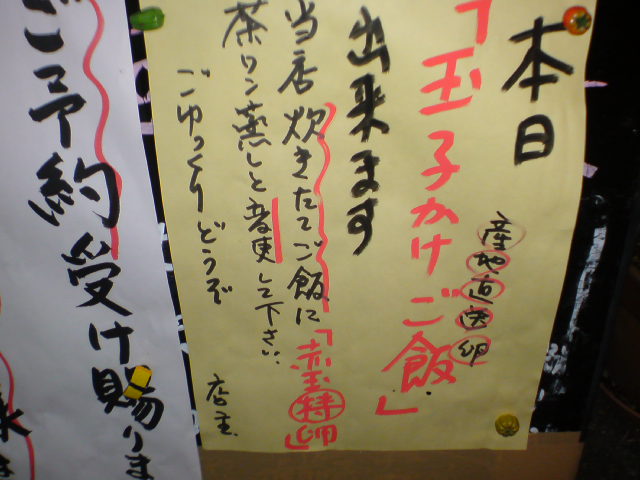 本日
産地直送卵
「玉子かけご飯」
出来ます
当店炊きたてご飯に「赤玉特卵」
茶ワン蒸しと変更して下さい。
ごゆっくりどうぞ
店主
ご予約受け賜りま